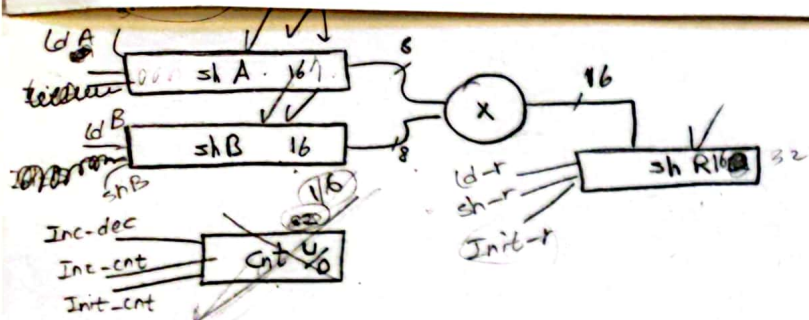 ld A
sh A 16
8
16
X
ld B
shB 16
8
shB
sh R16 32
ld-r
sh-r
Init-r
16
Inc-dec
Inc-cnt
Init-cnt
Cnt U/D